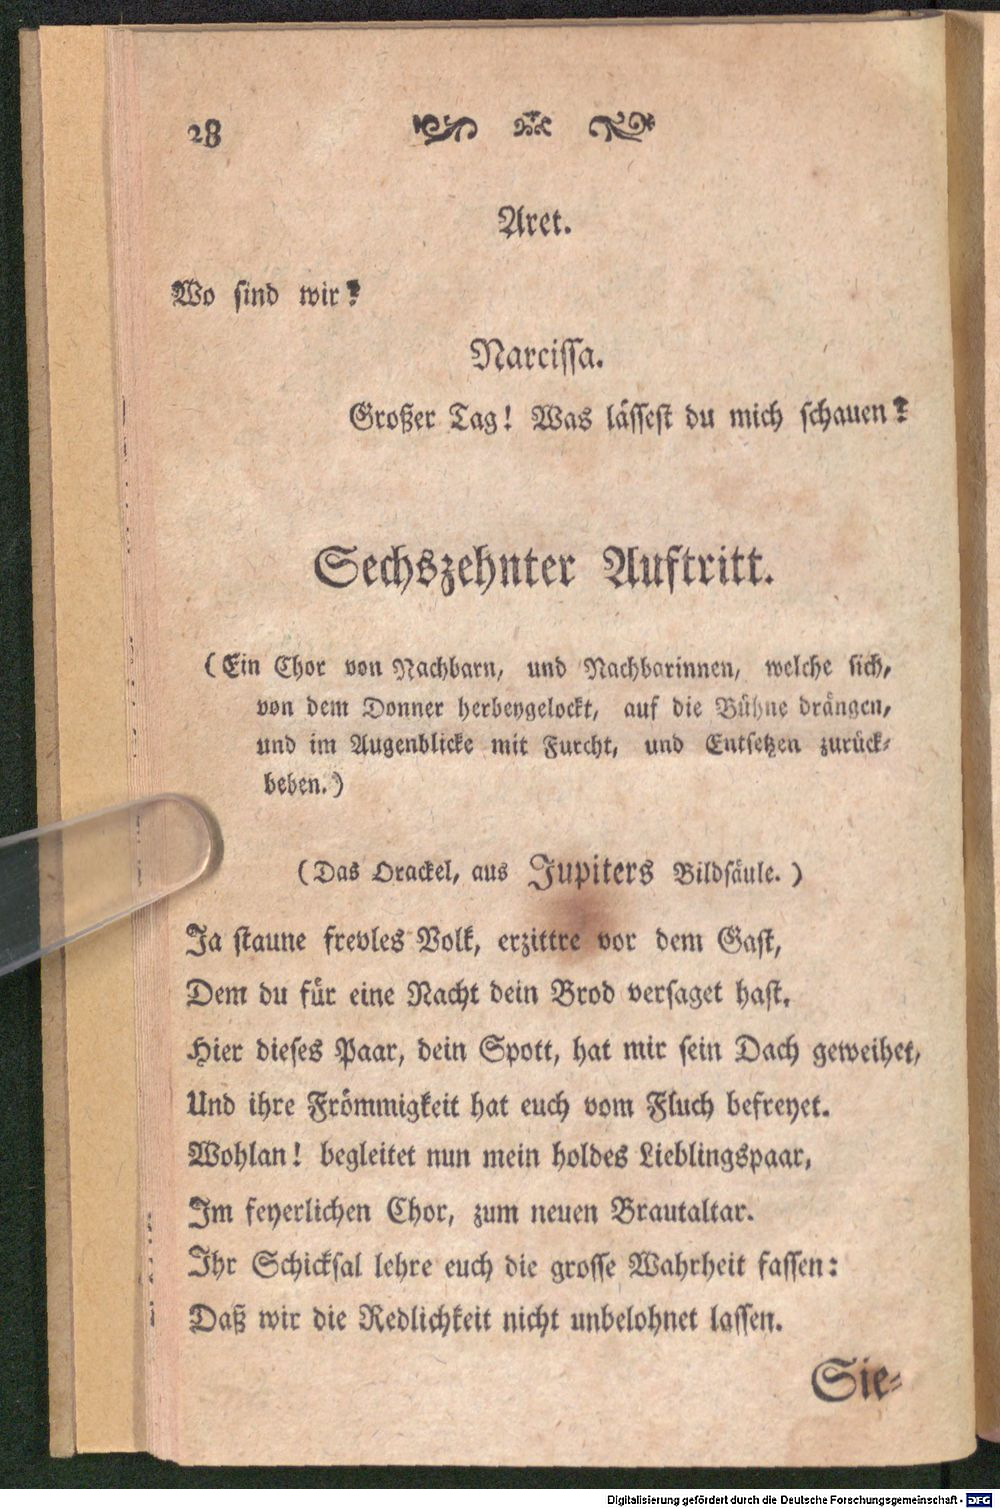 28
Aret.
Wo sind wir?
Narcissa.
Großer Tag! Was lässest du mich schauen?
Sechszehnter Auftritt.
(Ein Chor von Nachbarn, und Nachbarinnen, welche sich,
von dem Donner herbeygelockt, auf die Bühne drängen,
und im Augenblicke mit Furcht, und Entsetzen zurück-
beben.)
(Das Orackel, aus Jupiters Bildsäule.)
Ja staune frevles Volk, erzittre vor dem Gast,
Dem du für eine Nacht dein Brod versaget hast.
Hier dieses Paar, dein Spott, hat mir sein Dach geweihet,
Und ihre Frömmigkeit hat euch vom Fluch befreyet.
Wohlan! begleitet nun mein holdes Lieblingspaar,
Im feyerlichen Chor, zum neuen Brautaltar.
Ihr Schicksal lehre euch die grosse Wahrheit fassen:
Daß wir die Redlichkeit nicht unbelohnet lassen.
Sie-
Digitalisierung gefördert durch die Deutsche Forschungsgemeinschaft - DFG